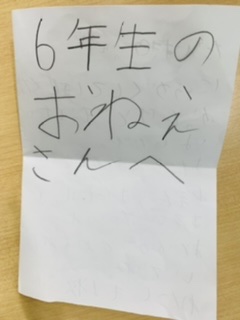 6年生の
おねえ
さんへ